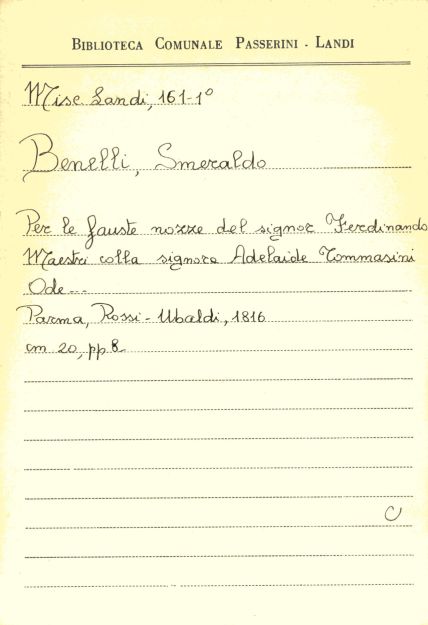 BIBLIOTECA COMUNALE PASSERINI - LANDI
Misc. Landi, 161-1º
Benelli, Smeraldo
Per le fauste nozze del signor Ferdinando
Maestri colla signora Adelaide Tommasini
Ode...
Parma, Rossi-Ubaldi, 1816
cm 20, pp. 8
C